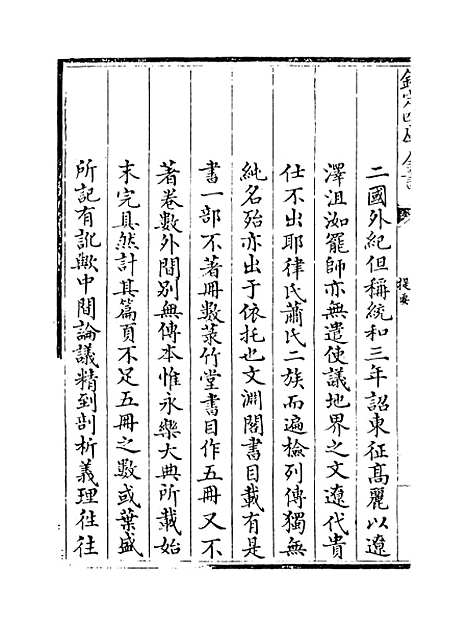 欽定四庫全書
提要
二國外紀但稱統和三年詔東征髙麗以遼
澤沮洳罷師亦無遣使議地界之文遼代貴
仕不出耶律氏蕭氏二族而遍檢列傳獨無
純名殆亦出于依托也文淵閣書目載有是
書一部不著冊數菉竹堂書目作五冊又不
著卷數外間别無傳本惟永樂大典所載始
末完具然計其篇頁不足五冊之數或葉盛
所記有訛歟中間論議精到剖析義理往往